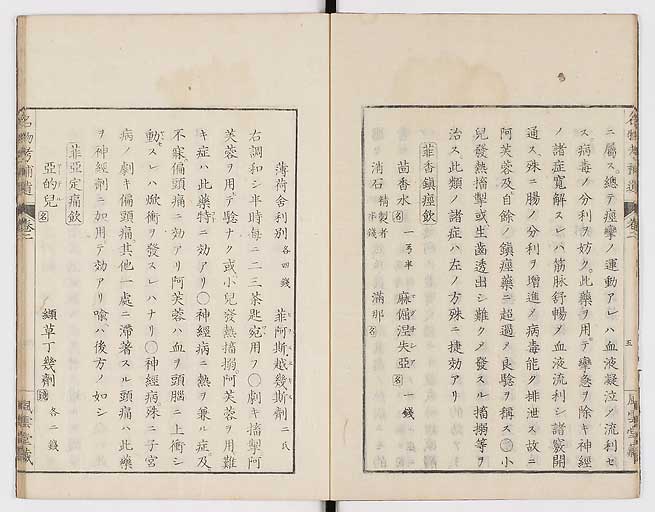 ニ屬ス。總テ痙攣ノ運動アレハ血液凝泣ノ流利セ
ス。病毒ノ分利ヲ妨ク。此藥ヲ用テ攣急ヲ除キ神經
ノ諸症寬解スレハ筋脉舒暢ノ血液流利シ諸竅開
通ス。殊ニ腸ノ分利ヲ增進ノ病毒能ク排泄ス故ニ
阿芙蓉及自餘ノ鎭痙藥ニ超過ノ良驗ヲ稱ス〇小
兒發熱搐搦或生齒透出シ難クノ發スル搐搦等ヲ
治ス。此類ノ諸症ハ左ノ方殊ニ捷効アリ
菲沓鎭痙飮
茴香水 名 一 半
麻倔涅失亞 名 一錢
消石 精製者 半錢
滿那 名
五
風雲堂藏
薄荷舍利別 各四錢
菲阿斯越幾斯劑 二氏
右調和シ半時每ニ二三茶匙宛用フ〇劇キ搐掣阿
芙蓉ヲ用テ驗ナク或小兒發熱搐搦。阿芙蓉ヲ用難
キ症ハ此藥特ニ効アリ〇神經病ニ熱ヲ兼ル症。及
不寐偏頭痛ニ効アリ阿芙蓉ハ血ヲ頭腦ニ上衝シ
動スレハ焮衝ヲ發スレハナリ〇神經病。殊ニ子宮
病ノ劇キ偏頭痛。其他一處ニ滯著スル頭痛ハ此藥
ヲ神經劑ニ加用テ効アリ喩ハ後方ノ如シ
菲亞定痛飮
亞的兒 名
纈草丁幾劑 各二錢
名物考補遺 卷二
風雲堂藏